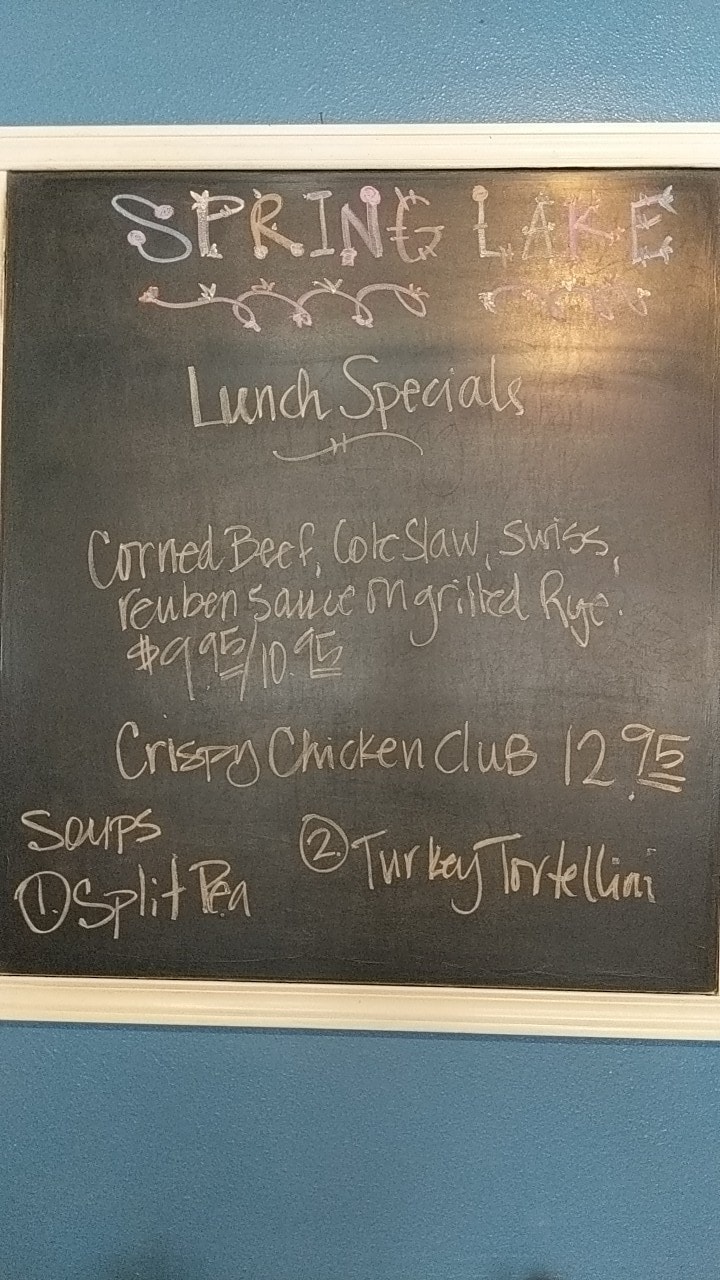 SPRING LAKE
Lunch Specials
Corned Beef, Cole Slaw, Swiss,
reuben sauce on grilled Rye.
$9.95/10.95
Crispy Chicken Club 12.95
Soups
1. Split Pea
2. Turkey Tortellini